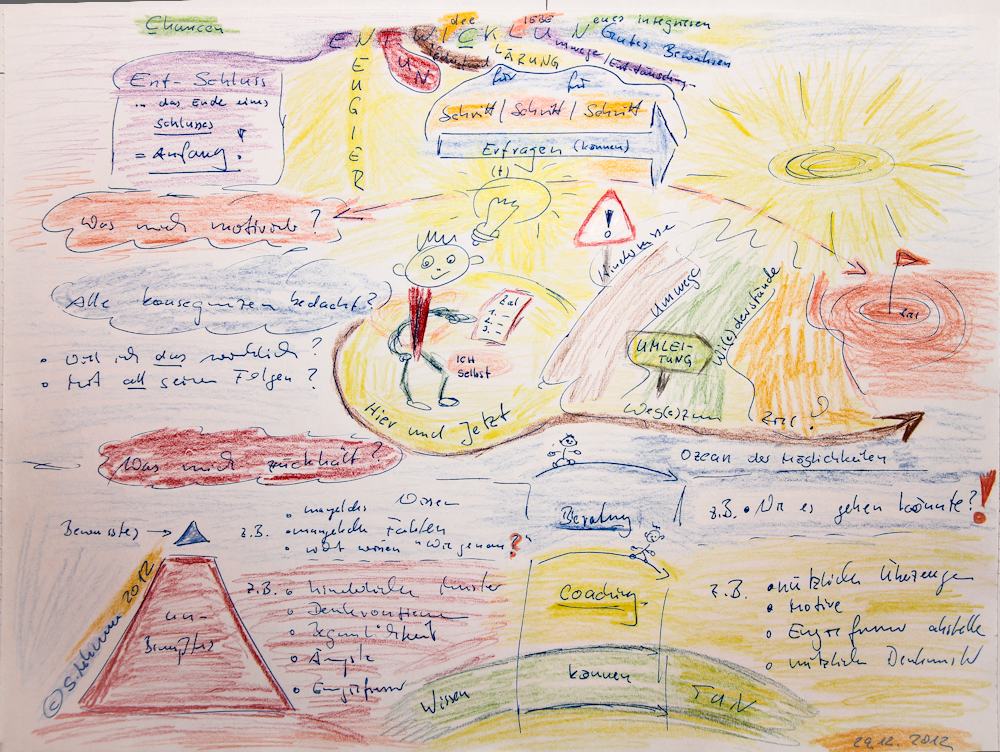 Chancen
ENTWICKLUNG
die
LIEBE
neues integrieren
Gutes Bewahren
Umwege / Enttäuschung
LÄRUNG
UN
NEUGIER
Ent-Schluss
... das Ende eines
Schlusses
= Anfang!
für für
Schritt / Schritt / Schritt
Erfragen (können)
(t)
Was mich motiviert?
Alle Konsequenzen bedacht?
• Will ich das wirklich?
• Mit all seinen Folgen?
Ziel
1. –
2. –
3. –
ICH
selbst
Hier und Jetzt
!
Hindernisse
Umweg
UMLEI-
TUNG
Wi(e)derstände
Weg(e) zum Ziel?
Ziel
Was mich zurückhält?
Ozean der Möglichkeiten
Bewusstes →
z.B. • mangelndes Wissen
• nicht wissen "Wie genau?"
Beratung
z.B. • Wie es gehen könnte?!
un-
Bewußtes
z.B. • hinderliche Muster
• Ängste
Coaching
z.B. • nützliche Überzeugungen
• Motive
• nützliche
Wissen
können
TUN
© S. 2012
29.12.2012